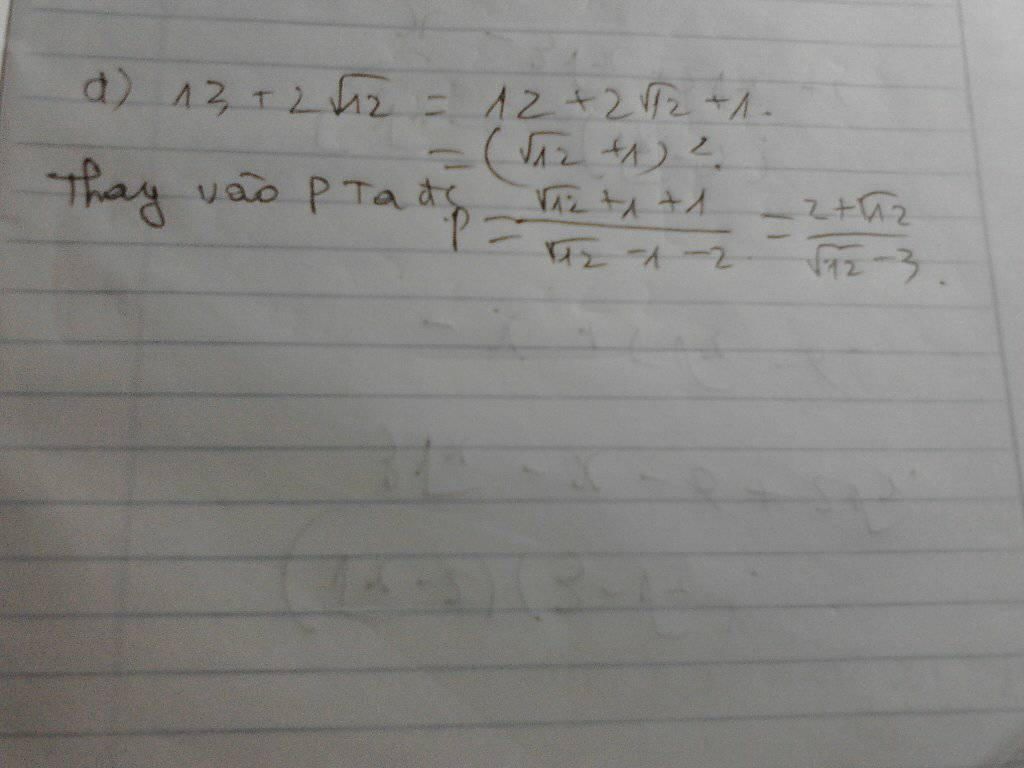 d) 13 + 2√12 = 12 + 2√12 + 1.
= (√12 + 1)².
Thay vào P Ta đc
P = (√12 + 1 + 1)/(√12 - 1 - 2) = (2 + √12)/(√12 - 3).